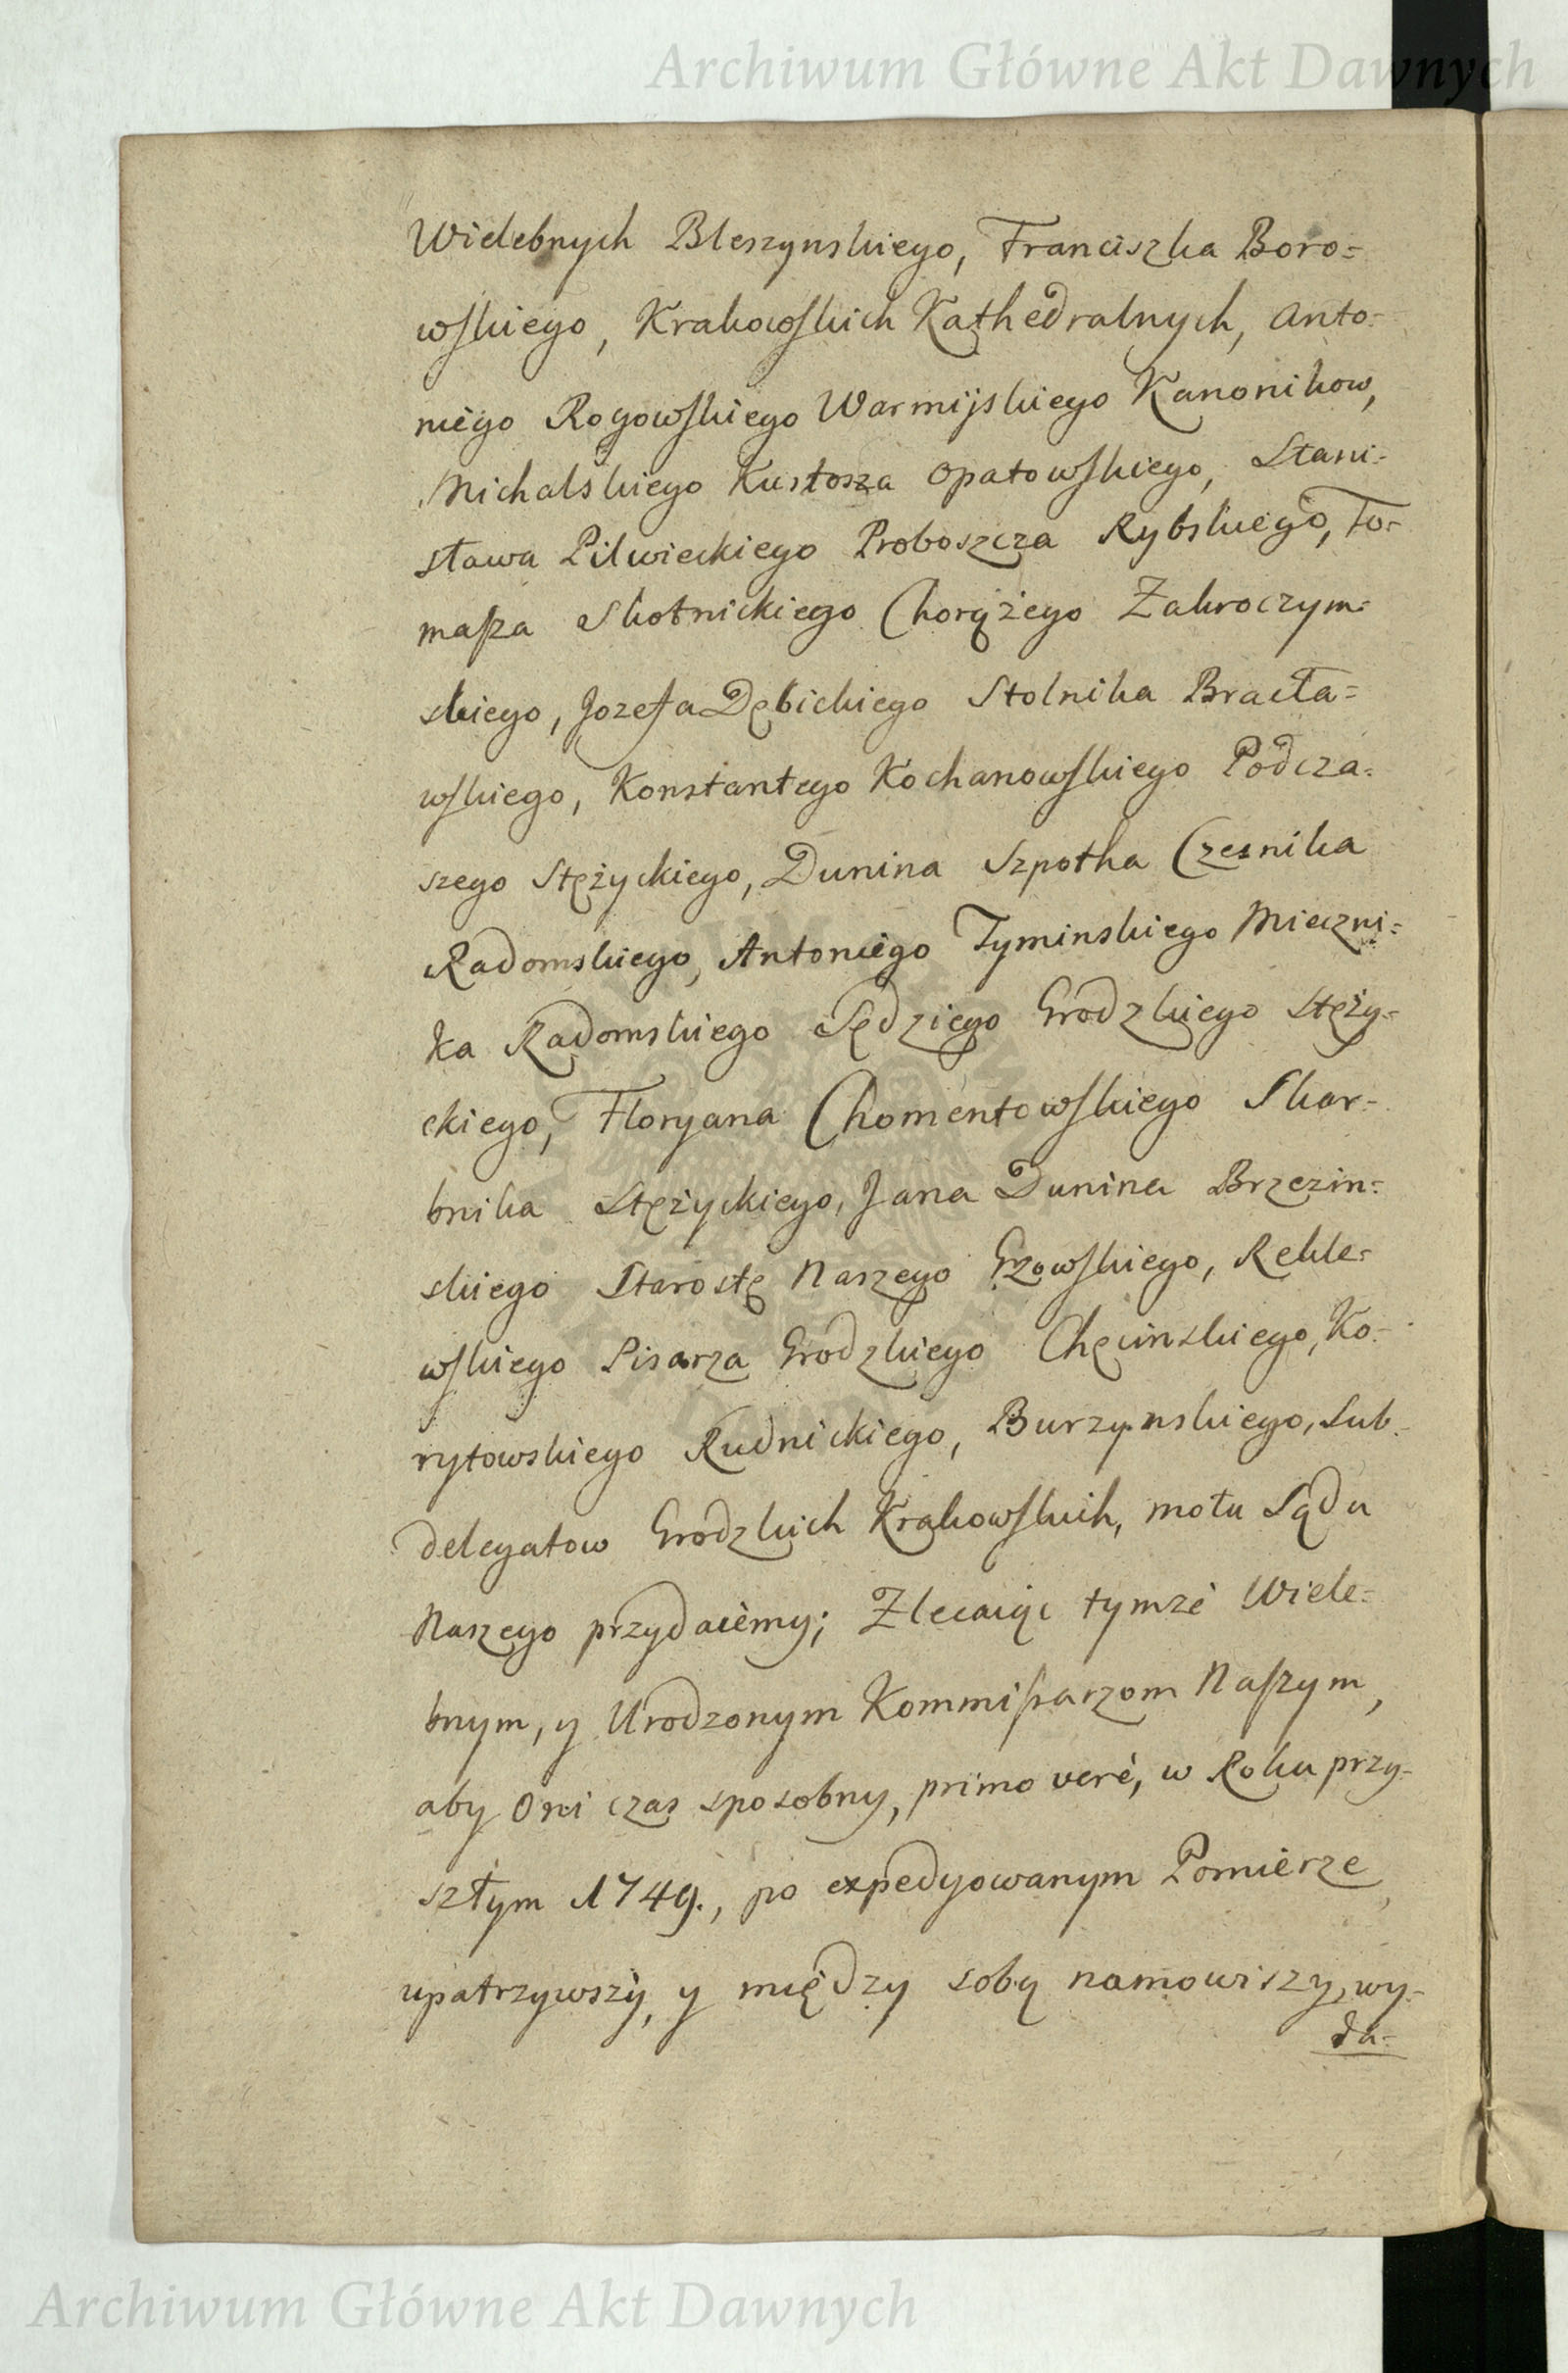 Archiwum Główne Akt Dawnych
Wielebnych Bleszynskiego, Franciszka Boro=
wskiego, Krakowskich Kathedralnych, Anto=
niego Rogowskiego Warmijskiego Kanonikow,
Michalskiego Kustosza Opatowskiego, Stani=
sława Pilwieckiego Proboszcza Rybskiego, To=
masza Skotnickiego Chorążego Zakroczym=
skiego, Jozefa Dębickiego Stolnika Bracła=
wskiego, Konstantego Kochanowskiego Podcza=
szego Stężyckiego, Dunina Szpotka Czesnika
Radomskiego, Antoniego Tyminskiego Mieczni=
ka Radomskiego Sędziego Grodzkiego Stęży=
ckiego, Floryana Chomentowskiego Skar=
bnika Stężyckiego, Jana Dunina Brzezin=
skiego Starostę Naszego Grzowskiego, Rekle=
wskiego Pisarza Grodzkiego Chęcinskiego, Ko=
rytowskiego Rudnickiego, Burzynskiego, Sub=
delegatow Grodzkich Krakowskich, mołu Sądu
Naszego przydaiemy; Zlecaiąc tymże Wiele=
bnym, y Urodzonym Kommissarzom Naszym,
aby Oni czas sposobny, primo veré, w Roku przy=
szłym 1749., po expedyowanym Pomierze,
upatrzywszy, y między sobą namowiszy, wy=
da=
Archiwum Główne Akt Dawnych